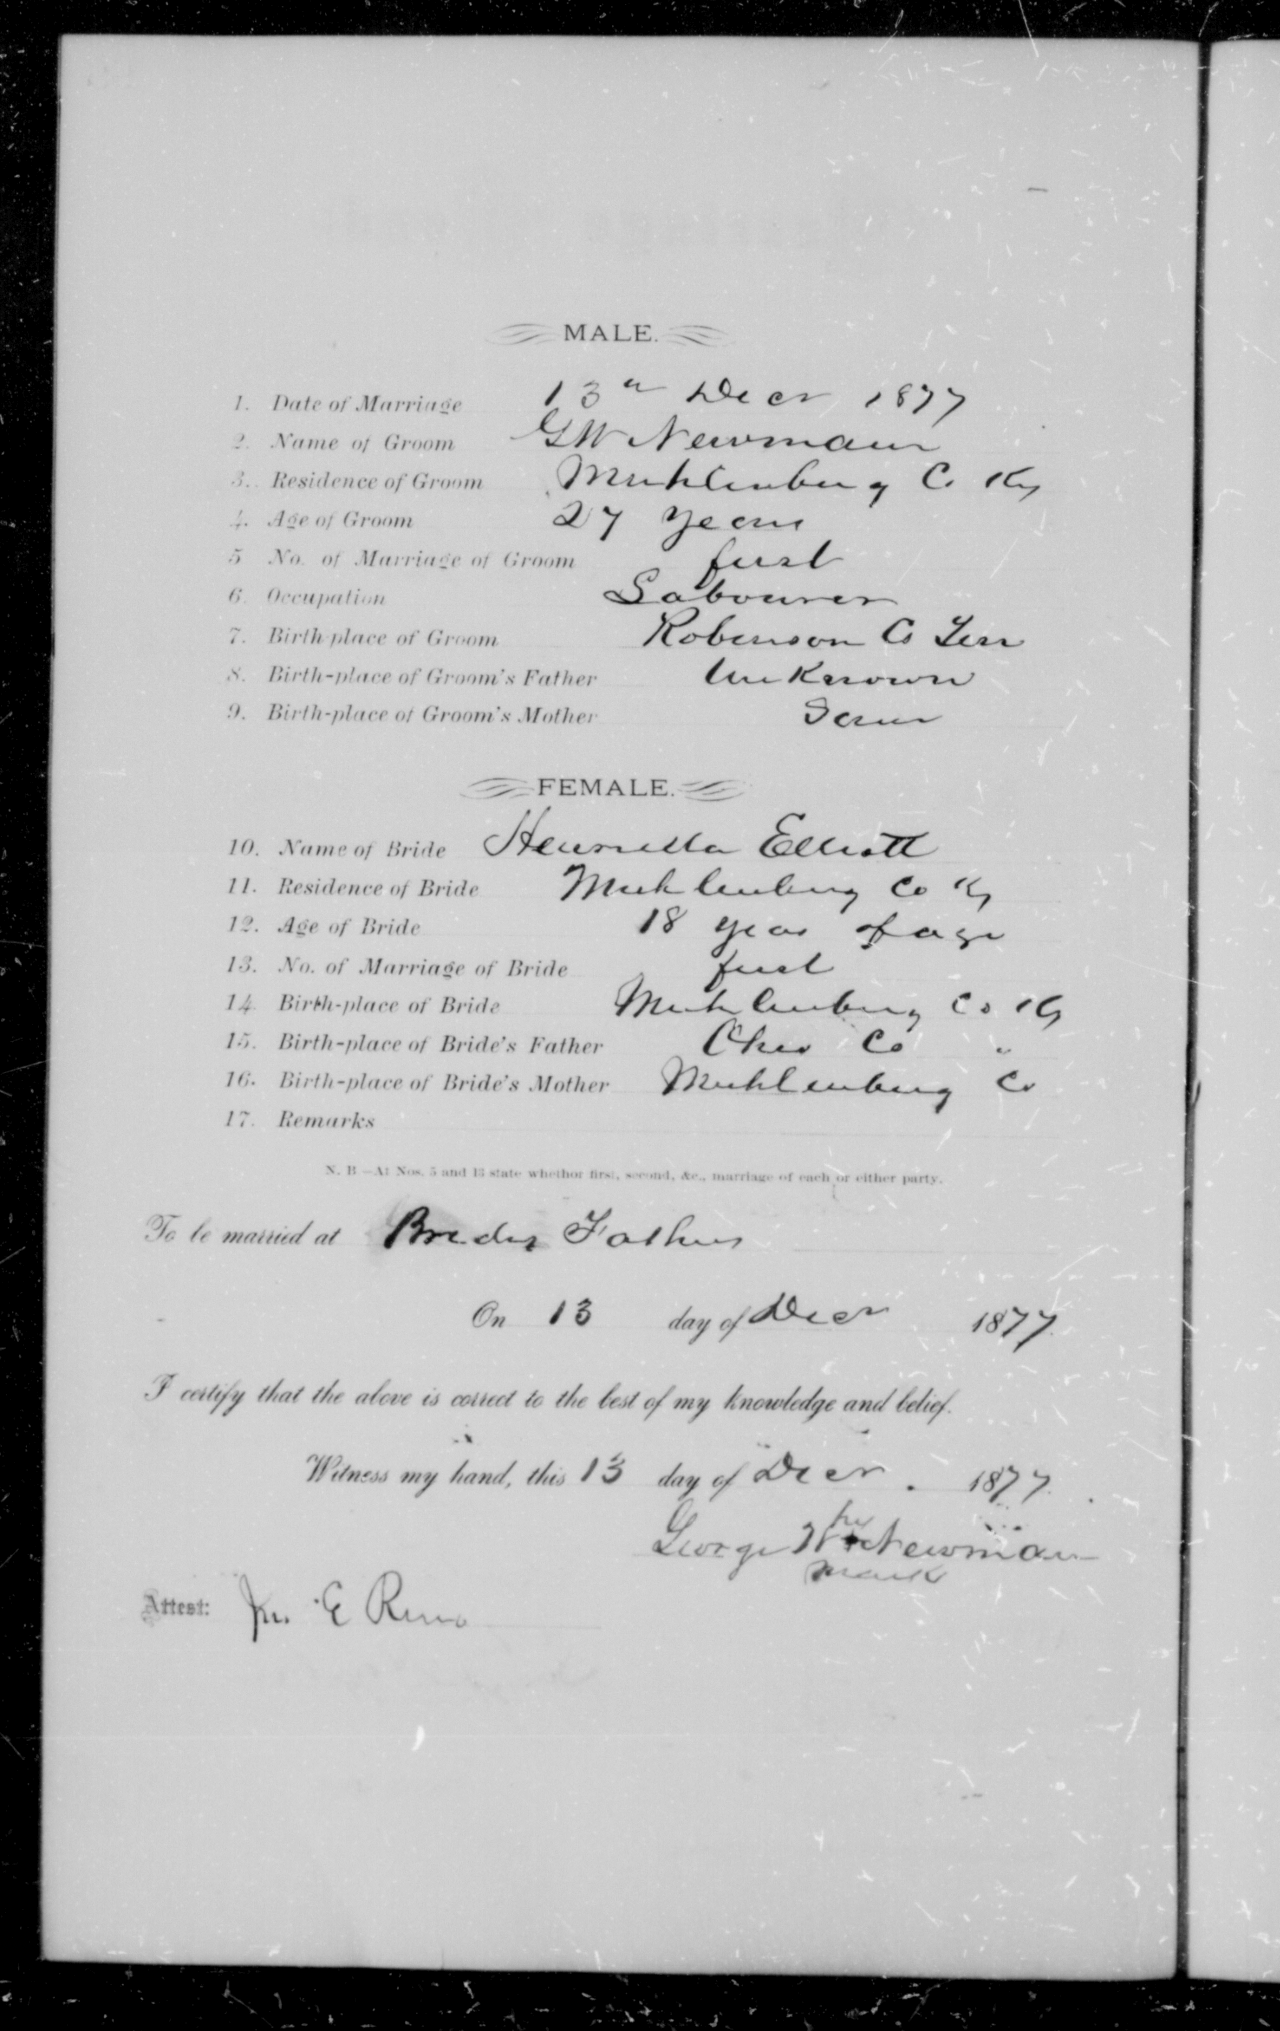 MALE.
1. Date of Marriage 13th Decr 1877
2. Name of Groom GW Newman
3. Residence of Groom Muhlenberg Co Ky
4. Age of Groom 27 years
5 No. of Marriage of Groom first
6. Occupation Labourer
7. Birth-place of Groom Roberson Co Ten
8. Birth-place of Groom's Father Unknown
9. Birth-place of Groom's Mother Tenn
FEMALE.
10. Name of Bride Henrietta Elliott
11. Residence of Bride Muhlenberg Co Ky
12. Age of Bride 18 year of age
13. No. of Marriage of Bride first
14 Birth-place of Bride Muhlenberg Co Ky
15. Birth-place of Bride's Father Ohio Co "
16. Birth-place of Bride's Mother Muhlenberg Co
17. Remarks
N. B.—At Nos. 5 and 13 state whether first, second, &c., marriage of each or either party.
To be married at Brides Fathers
On 13 day of Decr 1877.
I certify that the above is correct to the best of my knowledge and belief.
Witness my hand, this 13 day of Decr. 1877.
his
George W x Newman
mark
Attest: Jno. E Reno